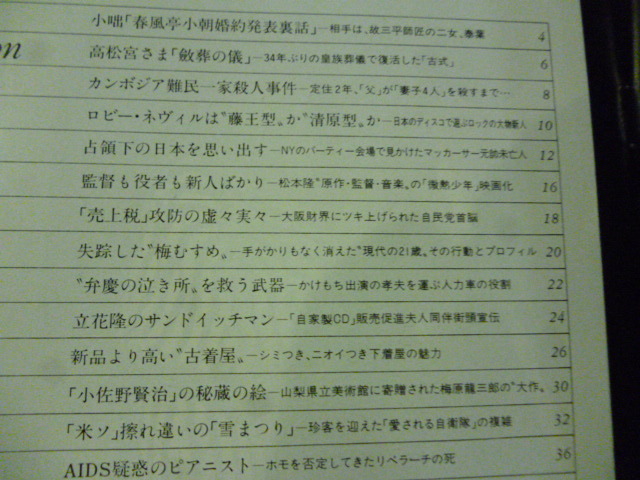 on
小咄「春風亭小朝婚約発表裏話」―相手は、故三平師匠の二女、泰葉 4
高松宮さま「斂葬の儀」―34年ぶりの皇族葬儀で復活した「古式」 6
カンボジア難民一家殺人事件―定住2年、「父」が「妻子4人」を殺すまで… 8
ロビー・ネヴィルは〝藤王型〟か〝清原型〟か―日本のディスコで選ぶロックの大物新人 10
占領下の日本を思い出す―NYのパーティー会場で見かけたマッカーサー元帥未亡人 12
監督も役者も新人ばかり―松本隆〝原作・監督・音楽〟の「微熱少年」映画化 16
「売上税」攻防の虚々実々―大阪財界にツキ上げられた自民党首脳 18
失踪した〝梅むすめ〟―手がかりもなく消えた〝現代の21歳〟その行動とプロフィル 20
〝弁慶の泣き所〟を救う武器―かけもち出演の孝夫を運ぶ人力車の役割 22
立花隆のサンドイッチマン―「自家製CD」販売促進夫人同伴街頭宣伝 24
新品より高い〝古着屋〟―シミつき、ニオイつき下着屋の魅力 26
「小佐野賢治」の秘蔵の絵―山梨県立美術館に寄贈された梅原龍三郎の〝大作〟 30
「米ソ」擦れ違いの「雪まつり」―珍客を迎えた「愛される自衛隊」の複雑 32
AIDS疑惑のピアニスト―ホモを否定してきたリベラーチの死 36